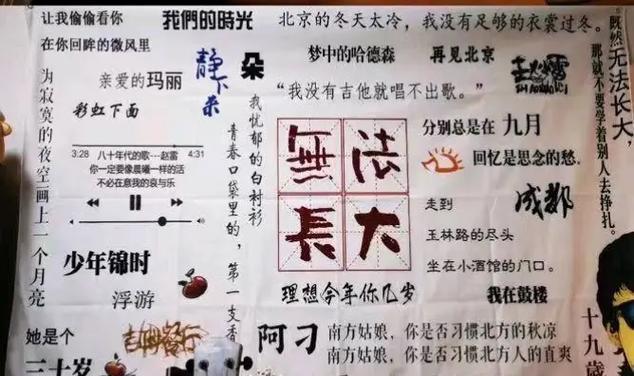 让我偷偷看你
在你回眸的微风里
我們的時光
北京的冬天太冷，我没有足够的衣裳过冬。
既然无法长大，
那就不要学着别人去挣扎。
为寂寞的夜空画上一个月亮
亲爱的玛丽
静下来
朵
梦中的哈德森
再见北京
赵雷
SHAO
彩虹下面
“我没有吉他就唱不出歌。”
我忧郁的白衬衫
青春口袋里的，第一支香
無法長大
分别总是在 九月
回忆是思念的愁。
3:28 八十年代的歌---赵雷 4:31
你一定要像晨曦一样的活
不必在意我的哀与乐
走到
成都
玉林路的尽头
坐在小酒馆的门口。
少年锦时
浮游
理想今年你几岁
我在鼓楼
她是个
三十岁
吉姆餐厅
阿刁
南方姑娘，你是否习惯北方的秋凉
南方姑娘，你是否习惯北方人的直爽
十九歲